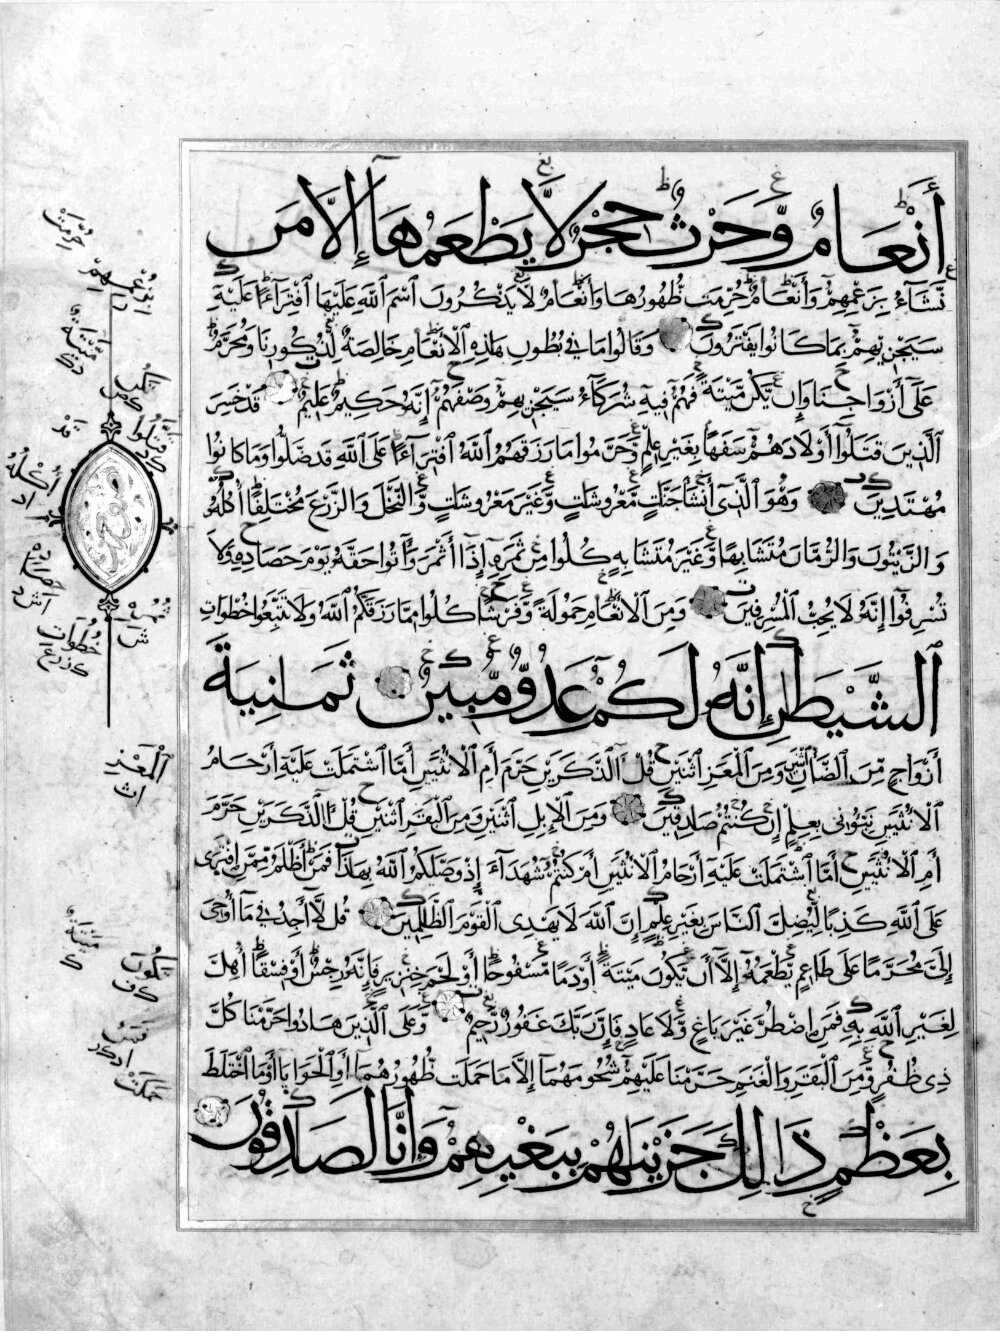 أَنْعَامٌ وَحَرْثٌ حِجْرٌ لَّا يَطْعَمُهَا إِلَّا مَن
نَّشَاءُ بِزَعْمِهِمْ وَأَنْعَامٌ حُرِّمَتْ ظُهُورُهَا وَأَنْعَامٌ لَّا يَذْكُرُونَ اسْمَ اللَّهِ عَلَيْهَا افْتِرَاءً عَلَيْهِ
سَيَجْزِيهِمْ بِمَا كَانُوا يَفْتَرُونَ وَقَالُوا مَا فِي بُطُونِ هَذِهِ الْأَنْعَامِ خَالِصَةٌ لِذُكُورِنَا وَمُحَرَّمٌ
عَلَى أَزْوَاجِنَا وَإِن يَكُن مَّيْتَةً فَهُمْ فِيهِ شُرَكَاءُ سَيَجْزِيهِمْ وَصْفَهُمْ إِنَّهُ حَكِيمٌ عَلِيمٌ قَدْ خَسِرَ
الَّذِينَ قَتَلُوا أَوْلَادَهُمْ سَفَهًا بِغَيْرِ عِلْمٍ وَحَرَّمُوا مَا رَزَقَهُمُ اللَّهُ افْتِرَاءً عَلَى اللَّهِ قَدْ ضَلُّوا وَمَا كَانُوا
مُهْتَدِينَ وَهُوَ الَّذِي أَنْشَأَ جَنَّاتٍ مَّعْرُوشَاتٍ وَغَيْرَ مَعْرُوشَاتٍ وَالنَّخْلَ وَالزَّرْعَ مُخْتَلِفًا أُكُلُهُ
وَالزَّيْتُونَ وَالرُّمَّانَ مُتَشَابِهًا وَغَيْرَ مُتَشَابِهٍ كُلُوا مِن ثَمَرِهِ إِذَا أَثْمَرَ وَآتُوا حَقَّهُ يَوْمَ حَصَادِهِ وَلَا
تُسْرِفُوا إِنَّهُ لَا يُحِبُّ الْمُسْرِفِينَ وَمِنَ الْأَنْعَامِ حَمُولَةً وَفَرْشًا كُلُوا مِمَّا رَزَقَكُمُ اللَّهُ وَلَا تَتَّبِعُوا خُطُوَاتِ
الشَّيْطَانِ إِنَّهُ لَكُمْ عَدُوٌّ مُّبِينٌ ثَمَانِيَةَ
أَزْوَاجٍ مِّنَ الضَّأْنِ اثْنَيْنِ وَمِنَ الْمَعْزِ اثْنَيْنِ قُلْ آلذَّكَرَيْنِ حَرَّمَ أَمِ الْأُنْثَيَيْنِ أَمَّا اشْتَمَلَتْ عَلَيْهِ أَرْحَامُ
الْأُنْثَيَيْنِ نَبِّئُونِي بِعِلْمٍ إِن كُنْتُمْ صَادِقِينَ وَمِنَ الْإِبِلِ اثْنَيْنِ وَمِنَ الْبَقَرِ اثْنَيْنِ قُلْ آلذَّكَرَيْنِ حَرَّمَ
أَمِ الْأُنْثَيَيْنِ أَمَّا اشْتَمَلَتْ عَلَيْهِ أَرْحَامُ الْأُنْثَيَيْنِ أَمْ كُنْتُمْ شُهَدَاءَ إِذْ وَصَّاكُمُ اللَّهُ بِهَذَا فَمَنْ أَظْلَمُ مِمَّنِ افْتَرَى
عَلَى اللَّهِ كَذِبًا لِّيُضِلَّ النَّاسَ بِغَيْرِ عِلْمٍ إِنَّ اللَّهَ لَا يَهْدِي الْقَوْمَ الظَّالِمِينَ قُل لَّا أَجِدُ فِي مَا أُوحِيَ
إِلَيَّ مُحَرَّمًا عَلَى طَاعِمٍ يَطْعَمُهُ إِلَّا أَن يَكُونَ مَيْتَةً أَوْ دَمًا مَّسْفُوحًا أَوْ لَحْمَ خِنْزِيرٍ فَإِنَّهُ رِجْسٌ أَوْ فِسْقًا أُهِلَّ
لِغَيْرِ اللَّهِ بِهِ فَمَنِ اضْطُرَّ غَيْرَ بَاغٍ وَلَا عَادٍ فَإِنَّ رَبَّكَ غَفُورٌ رَّحِيمٌ وَعَلَى الَّذِينَ هَادُوا حَرَّمْنَا كُلَّ
ذِي ظُفُرٍ وَمِنَ الْبَقَرِ وَالْغَنَمِ حَرَّمْنَا عَلَيْهِمْ شُحُومَهُمَا إِلَّا مَا حَمَلَتْ ظُهُورُهُمَا أَوِ الْحَوَايَا أَوْ مَا اخْتَلَطَ
بِعَظْمٍ ذَلِكَ جَزَيْنَاهُمْ بِبَغْيِهِمْ وَإِنَّا لَصَادِقُونَ
قَدْ
أُكُلُهُ
خُطُوَاتِ
الْمَعْزِ
مَيْتَةً